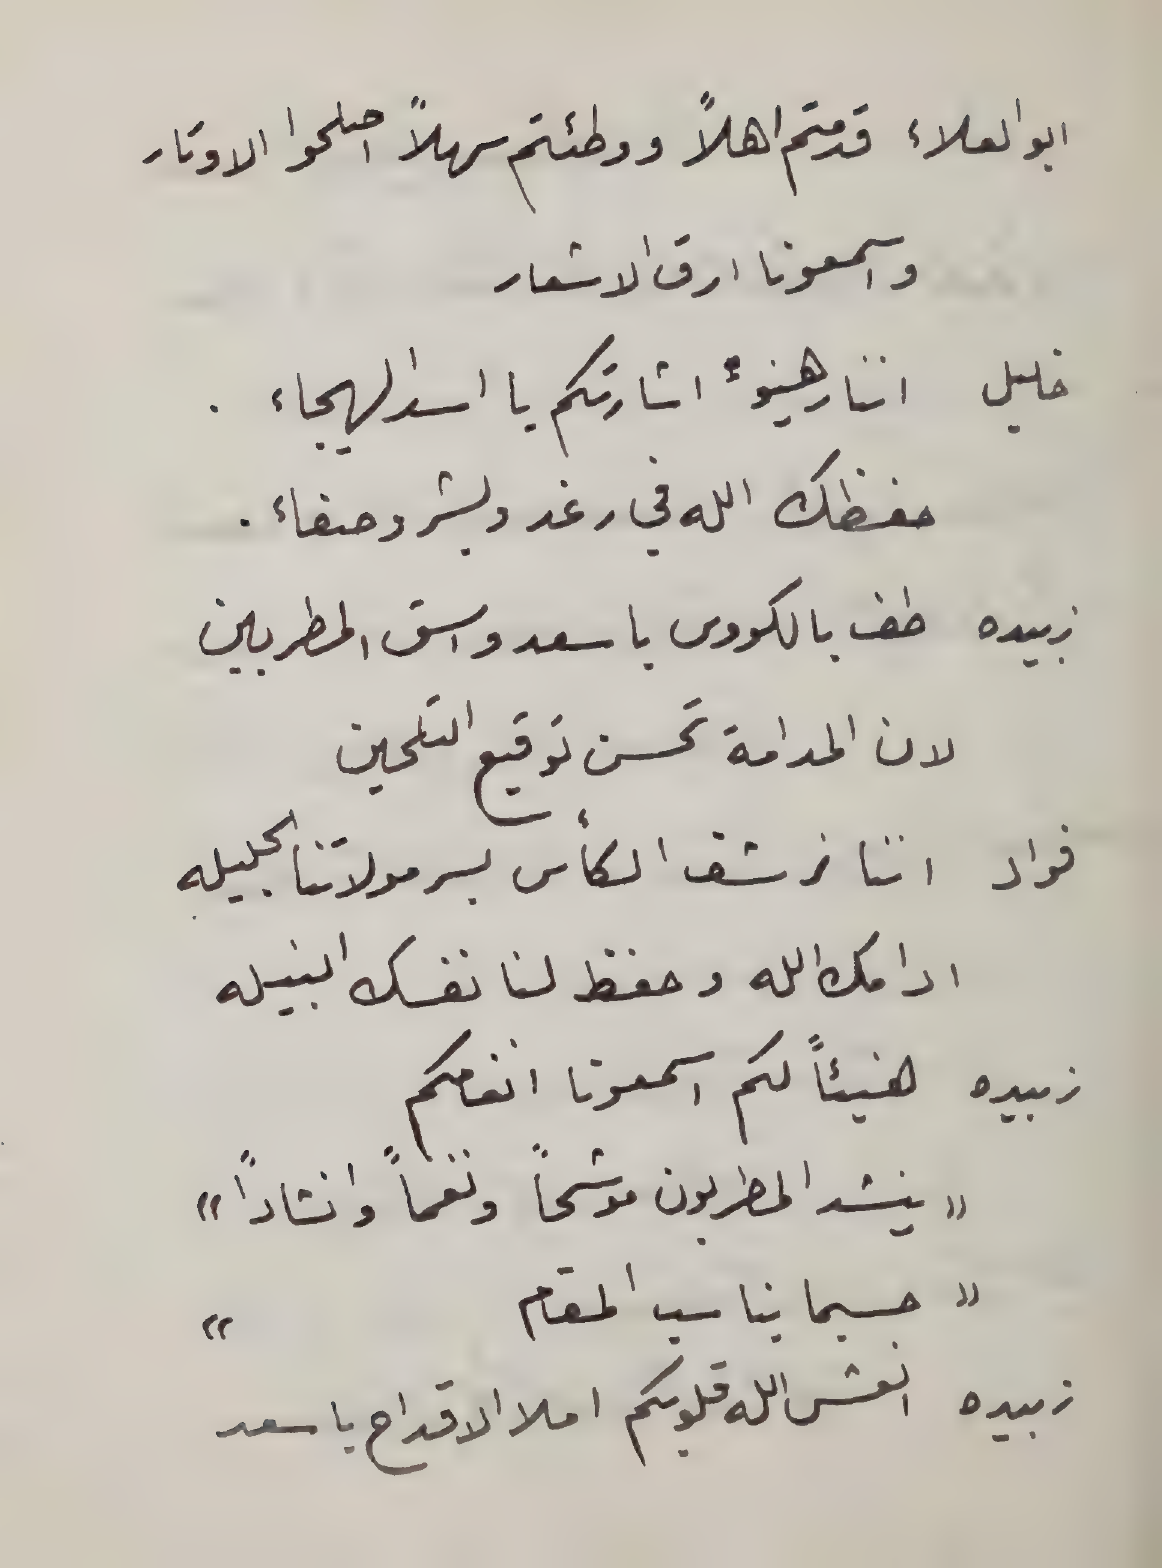 ابو العلاء قدمتم اهلاً ووطئتم سهلاً اصلحوا الاوتار
واسمعونا ارق الاشعار
خليل اننا رهينوء اشارتكم يا اسد الهيجاء .
حفظك الله في رغد وبشر وصفاء .
زبيده طف بالكووس يا سعد واسق المطربين
لان المدامة تحسن توقيع التلحين
فواد اننا نرشف الكأس بسر مولاتنا الجليله
ادامك الله وحفظ لنا نفسك النبيله
زبيده هنيئاً لكم اسمعونا انغامكم
« ينشد المطربون موشحاً ونغماً وانشاداً »
« حسبما يناسب المقام »
زبيده انعش الله قلوبكم املا الاقداح يا سعد